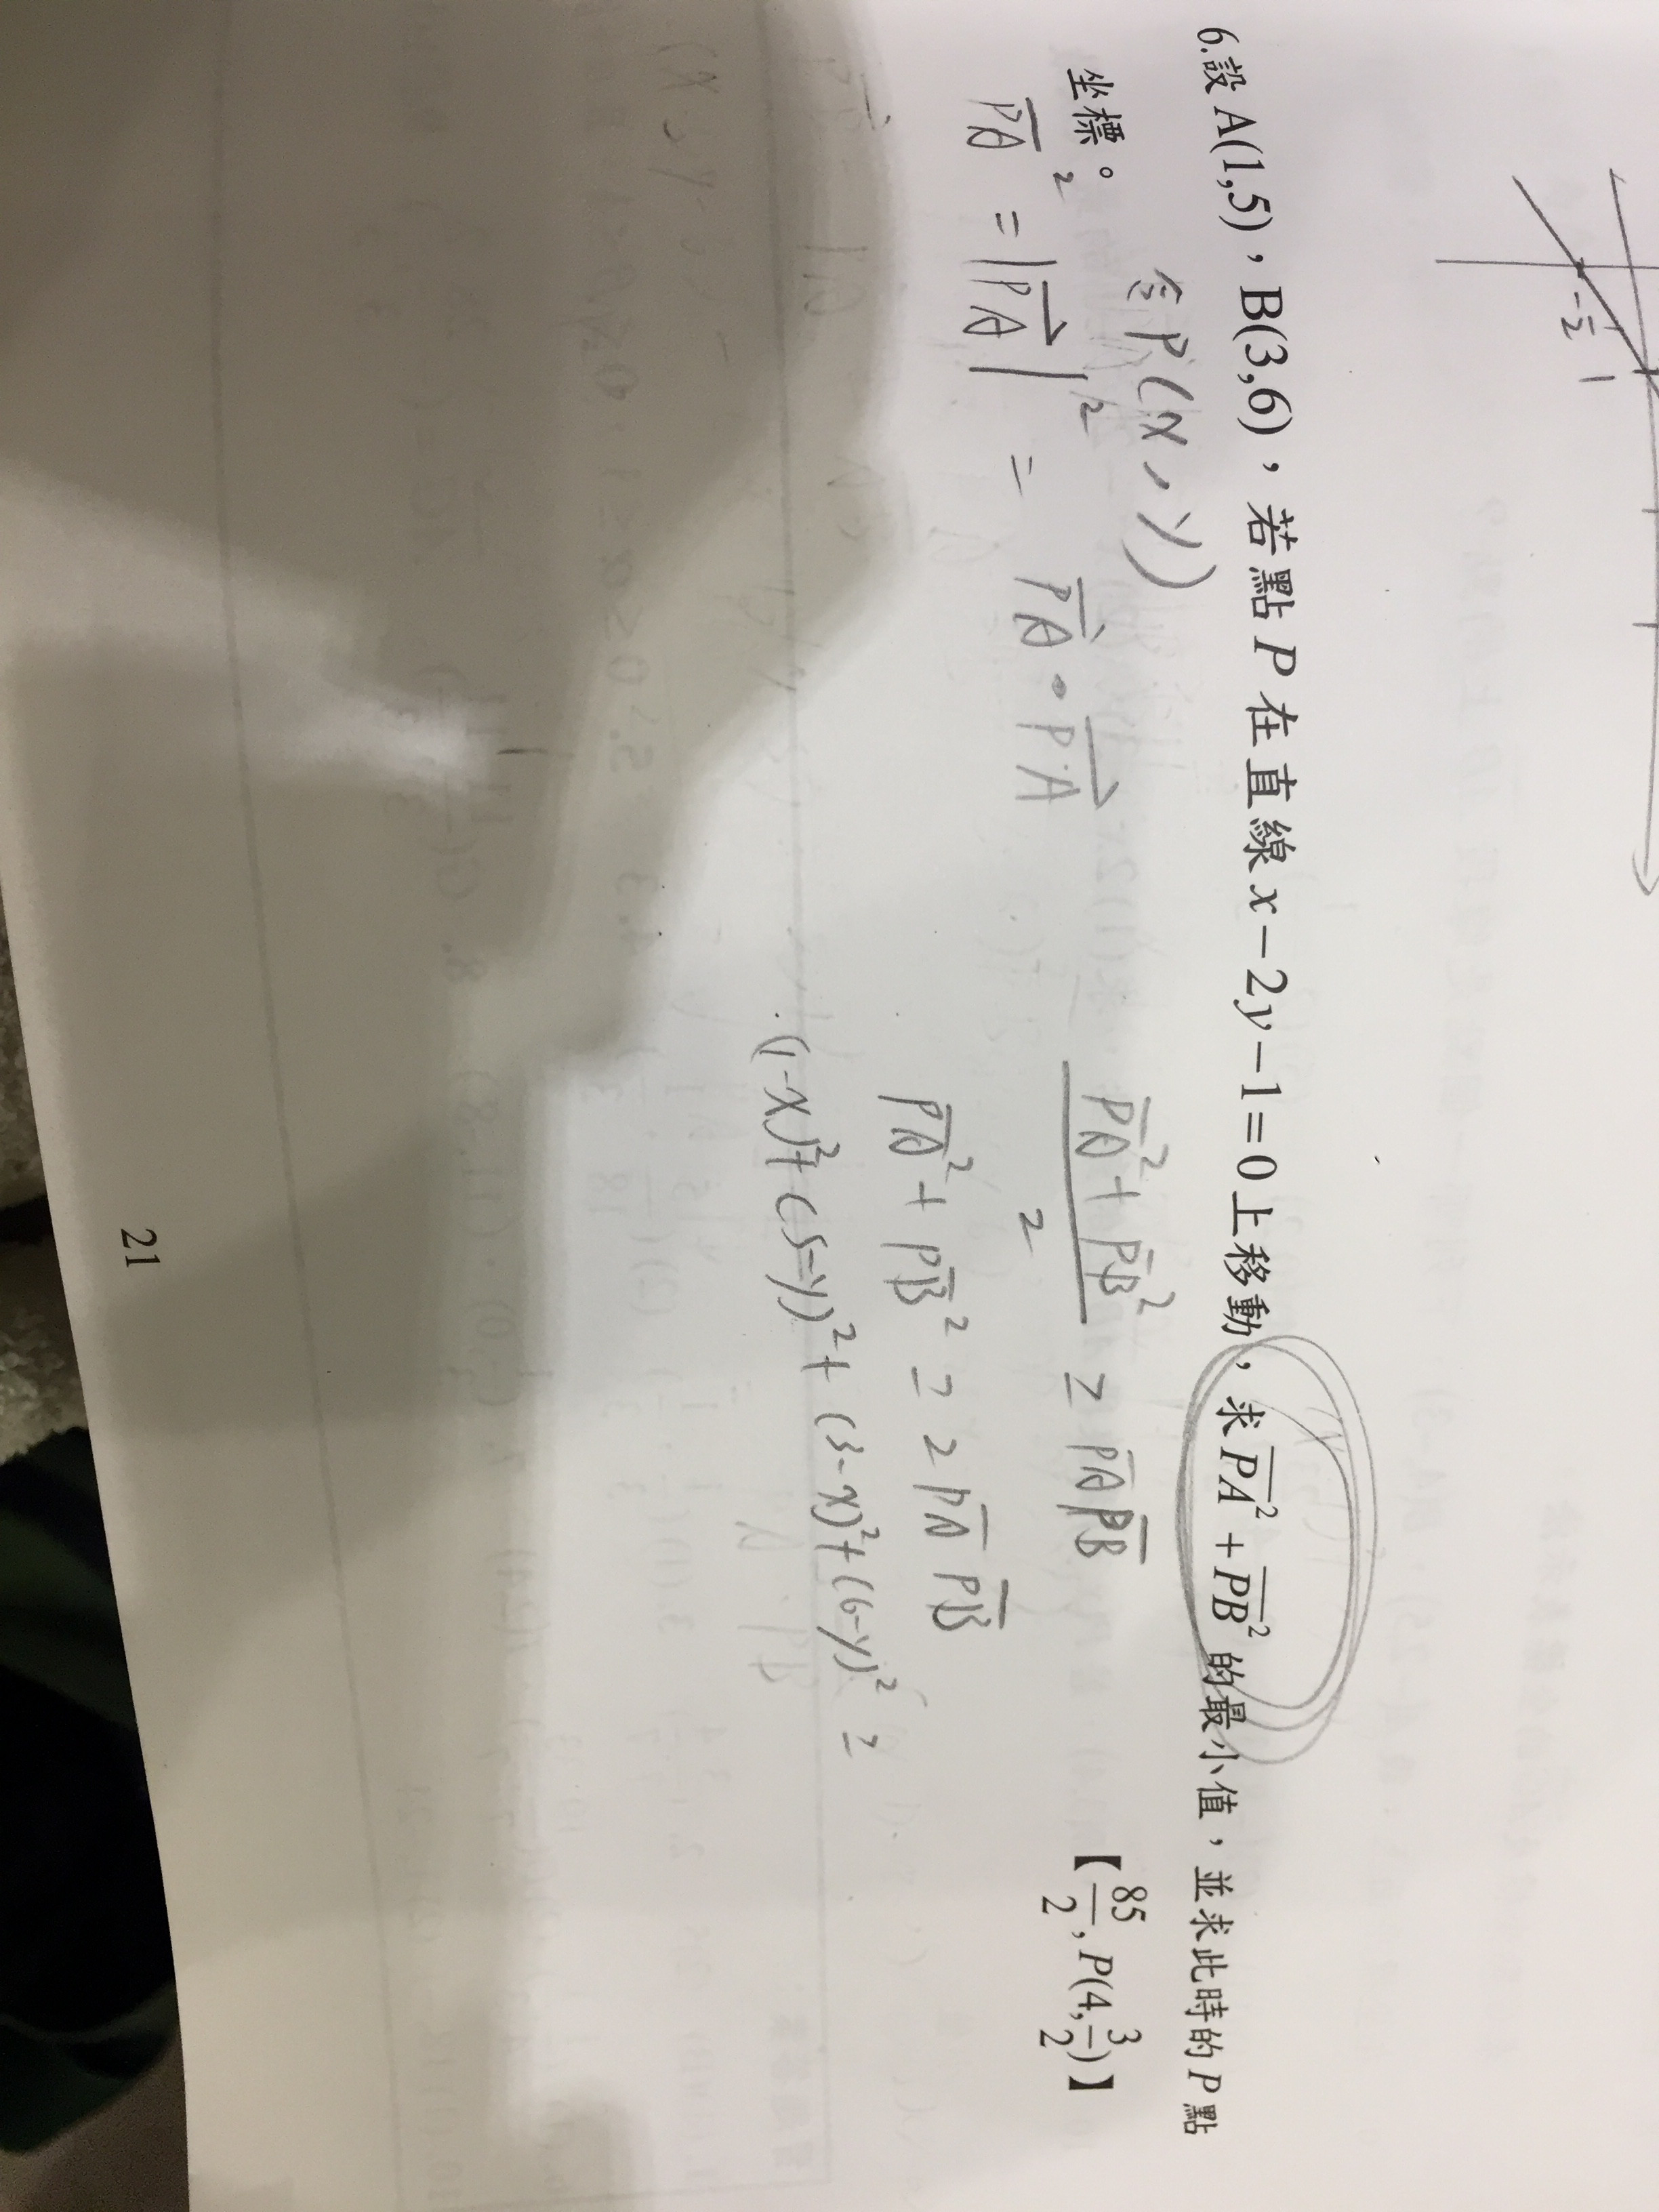 -1/2
1
6.設 A(1,5),B(3,6),若點 P 在直線 x−2y−1=0上移動,求 \overline{PA}²+\overline{PB}² 的最小值,並求此時的 P 點
坐標。
【85/2, P(4,3/2)】
令P(x,y)
\overline{PA}² = |\overrightarrow{PA}|² = \overrightarrow{PA}•\overrightarrow{PA}
(\overline{PA}²+\overline{PB}²)/2 ≥ \overline{PA}\overline{PB}
\overline{PA}²+\overline{PB}² ≥ 2\overline{PA}\overline{PB}
(1-x)²+(5-y)²+(3-x)²+(6-y)² ≥
21